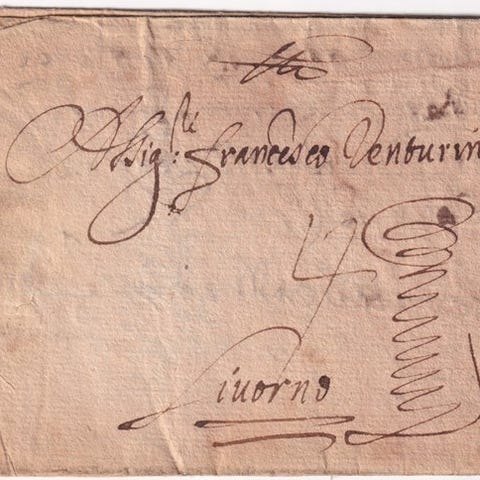 Al Sig.re Francesco Venturin
4
Livorno